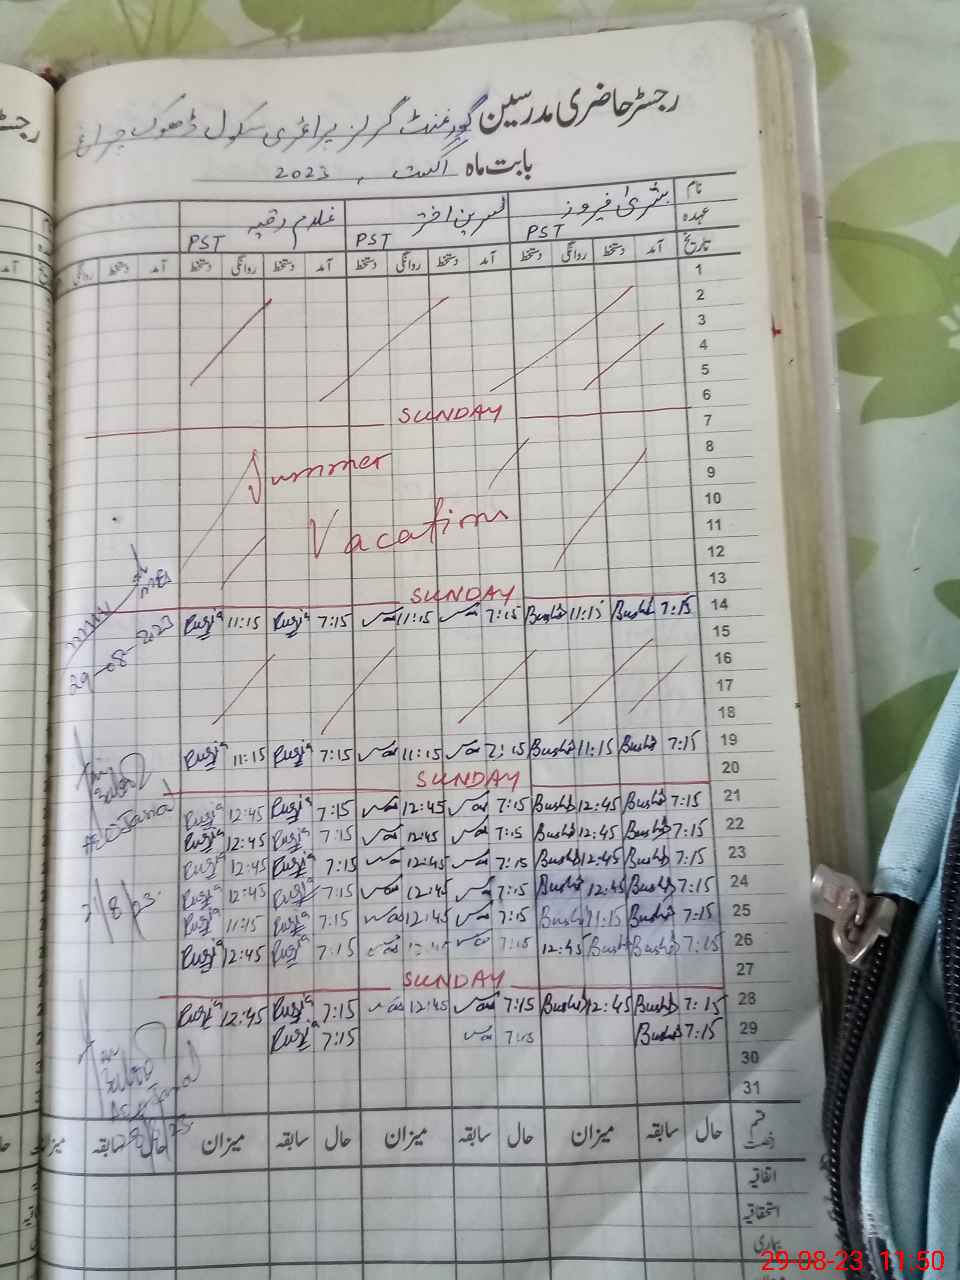 رجسٹر حاضری مدرسین گورنمنٹ گرلز پرائمری سکول ڈھوک چراغ
بابت ماہ اگست، 2023
نام بشریٰ فیروز نسرین اختر غلام رقیہ
عہدہ PST PST PST
تاریخ آمد دستخط روانگی دستخط آمد دستخط روانگی دستخط آمد دستخط روانگی دستخط آمد دستخط روانگی
1
2
3
4
5
6
SUNDAY
7
8
Summer
9
10
Vacation
11
12
13
SUNDAY
14 7:15 Bushra 11:15 Bushra 7:15 11:15 7:15 Ruqia 11:15 Ruqia
15
29-08-2023
16
17
18
19 7:15 Bushra 11:15 Bushra 7:15 11:15 7:15 Ruqia 11:15 Ruqia
20
SUNDAY
21 7:15 Bushra 12:45 Bushra 7:15 12:45 7:15 Ruqia 12:45 Ruqia
22 7:15 Bushra 12:45 Bushra 7:15 12:45 7:15 Ruqia 12:45 Ruqia
23 7:15 Bushra 12:45 Bushra 7:15 12:45 7:15 Ruqia 12:45 Ruqia
24 7:15 Bushra 12:45 Bushra 7:15 12:45 7:15 Ruqia 12:45 Ruqia
21/8/23
25 7:15 Bushra 11:15 Bushra 7:15 12:45 7:15 Ruqia 11:15 Ruqia
26 7:15 Bushra Bushra 12:45 7:15 12:45 7:15 Ruqia 12:45 Ruqia
27
SUNDAY
28 7:15 Bushra 12:45 Bushra 7:15 12:45 7:15 Ruqia 12:45 Ruqia
29 7:15 Bushra 7:15 7:15 Ruqia
30
31
قسم رخصت حال سابقہ میزان حال سابقہ میزان حال سابقہ میزان حال سابقہ میزان
اتفاقیہ
استحقاقیہ
بیماری
29-08-23 11:50